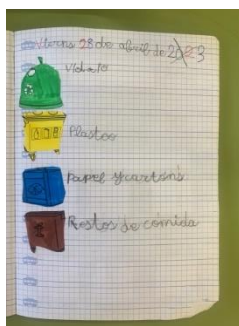 Viernes 28 de abril de 2023
vidrio
Plastco
papel y cartóns
Restos de comida